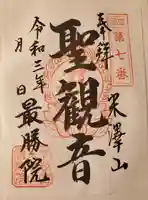 第七番
奉拝
米澤山
聖観音
最勝院
令和三年
月
日